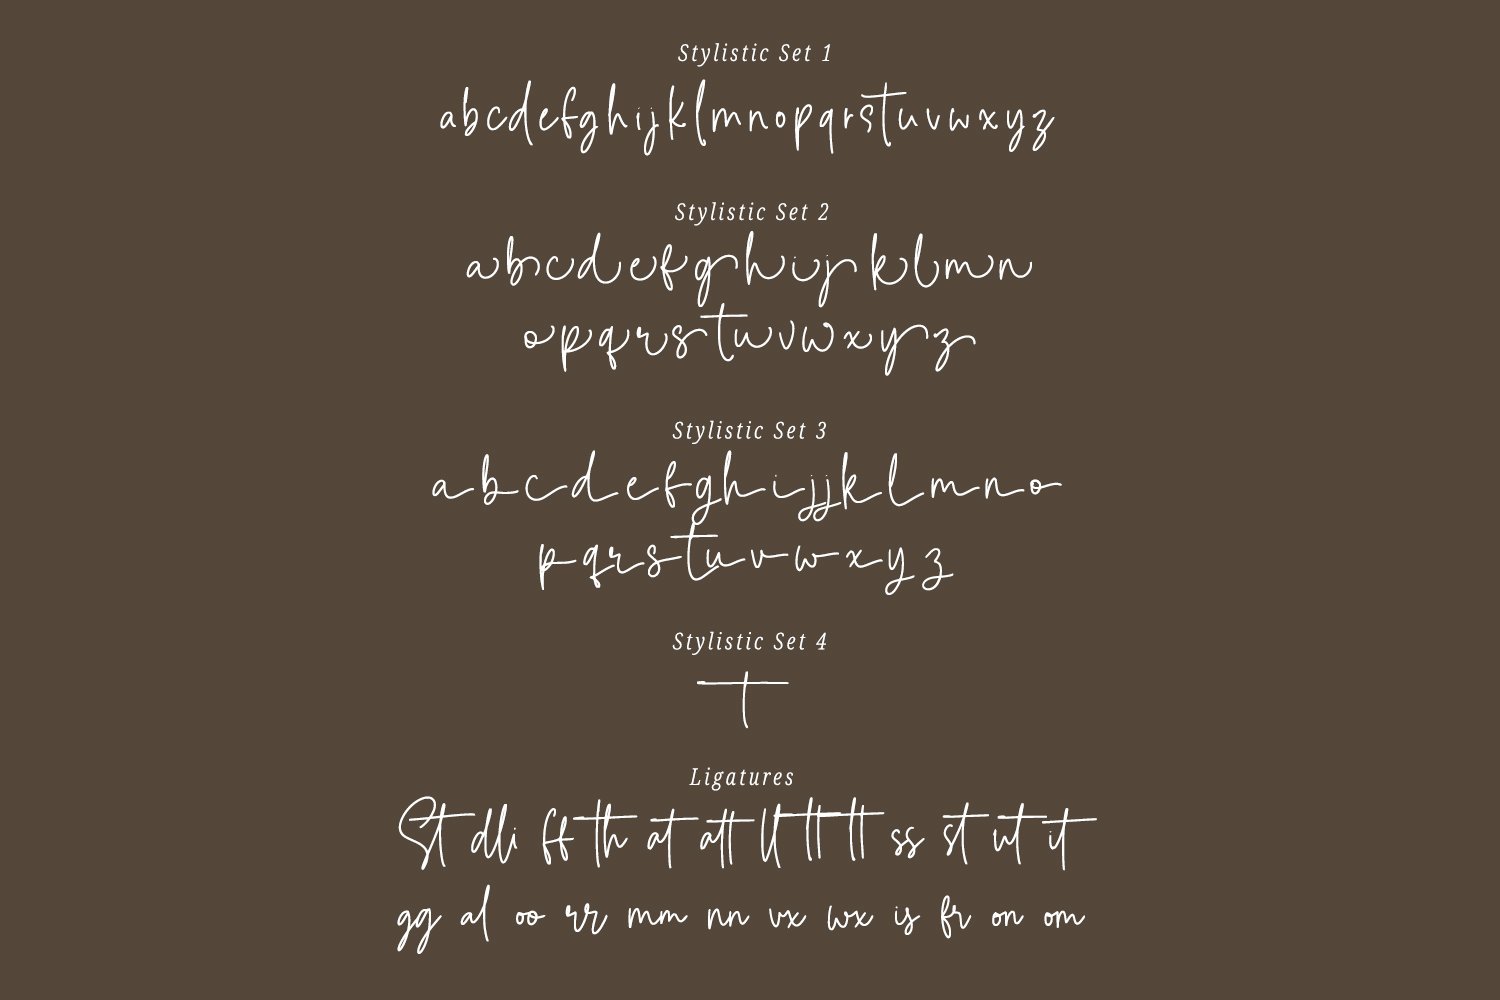 Stylistic Set 1
abcdefghijklmnopqrstuvwxyz
Stylistic Set 2
abcdefghijklmn
opqrstuvwxyz
Stylistic Set 3
abcdefghijjklmno
pqrstuvwxyz
Stylistic Set 4
t
Ligatures
St dli ff th at att lt tt tt ss st ut it
gg al oo rr mm nn vx wx is fr on om